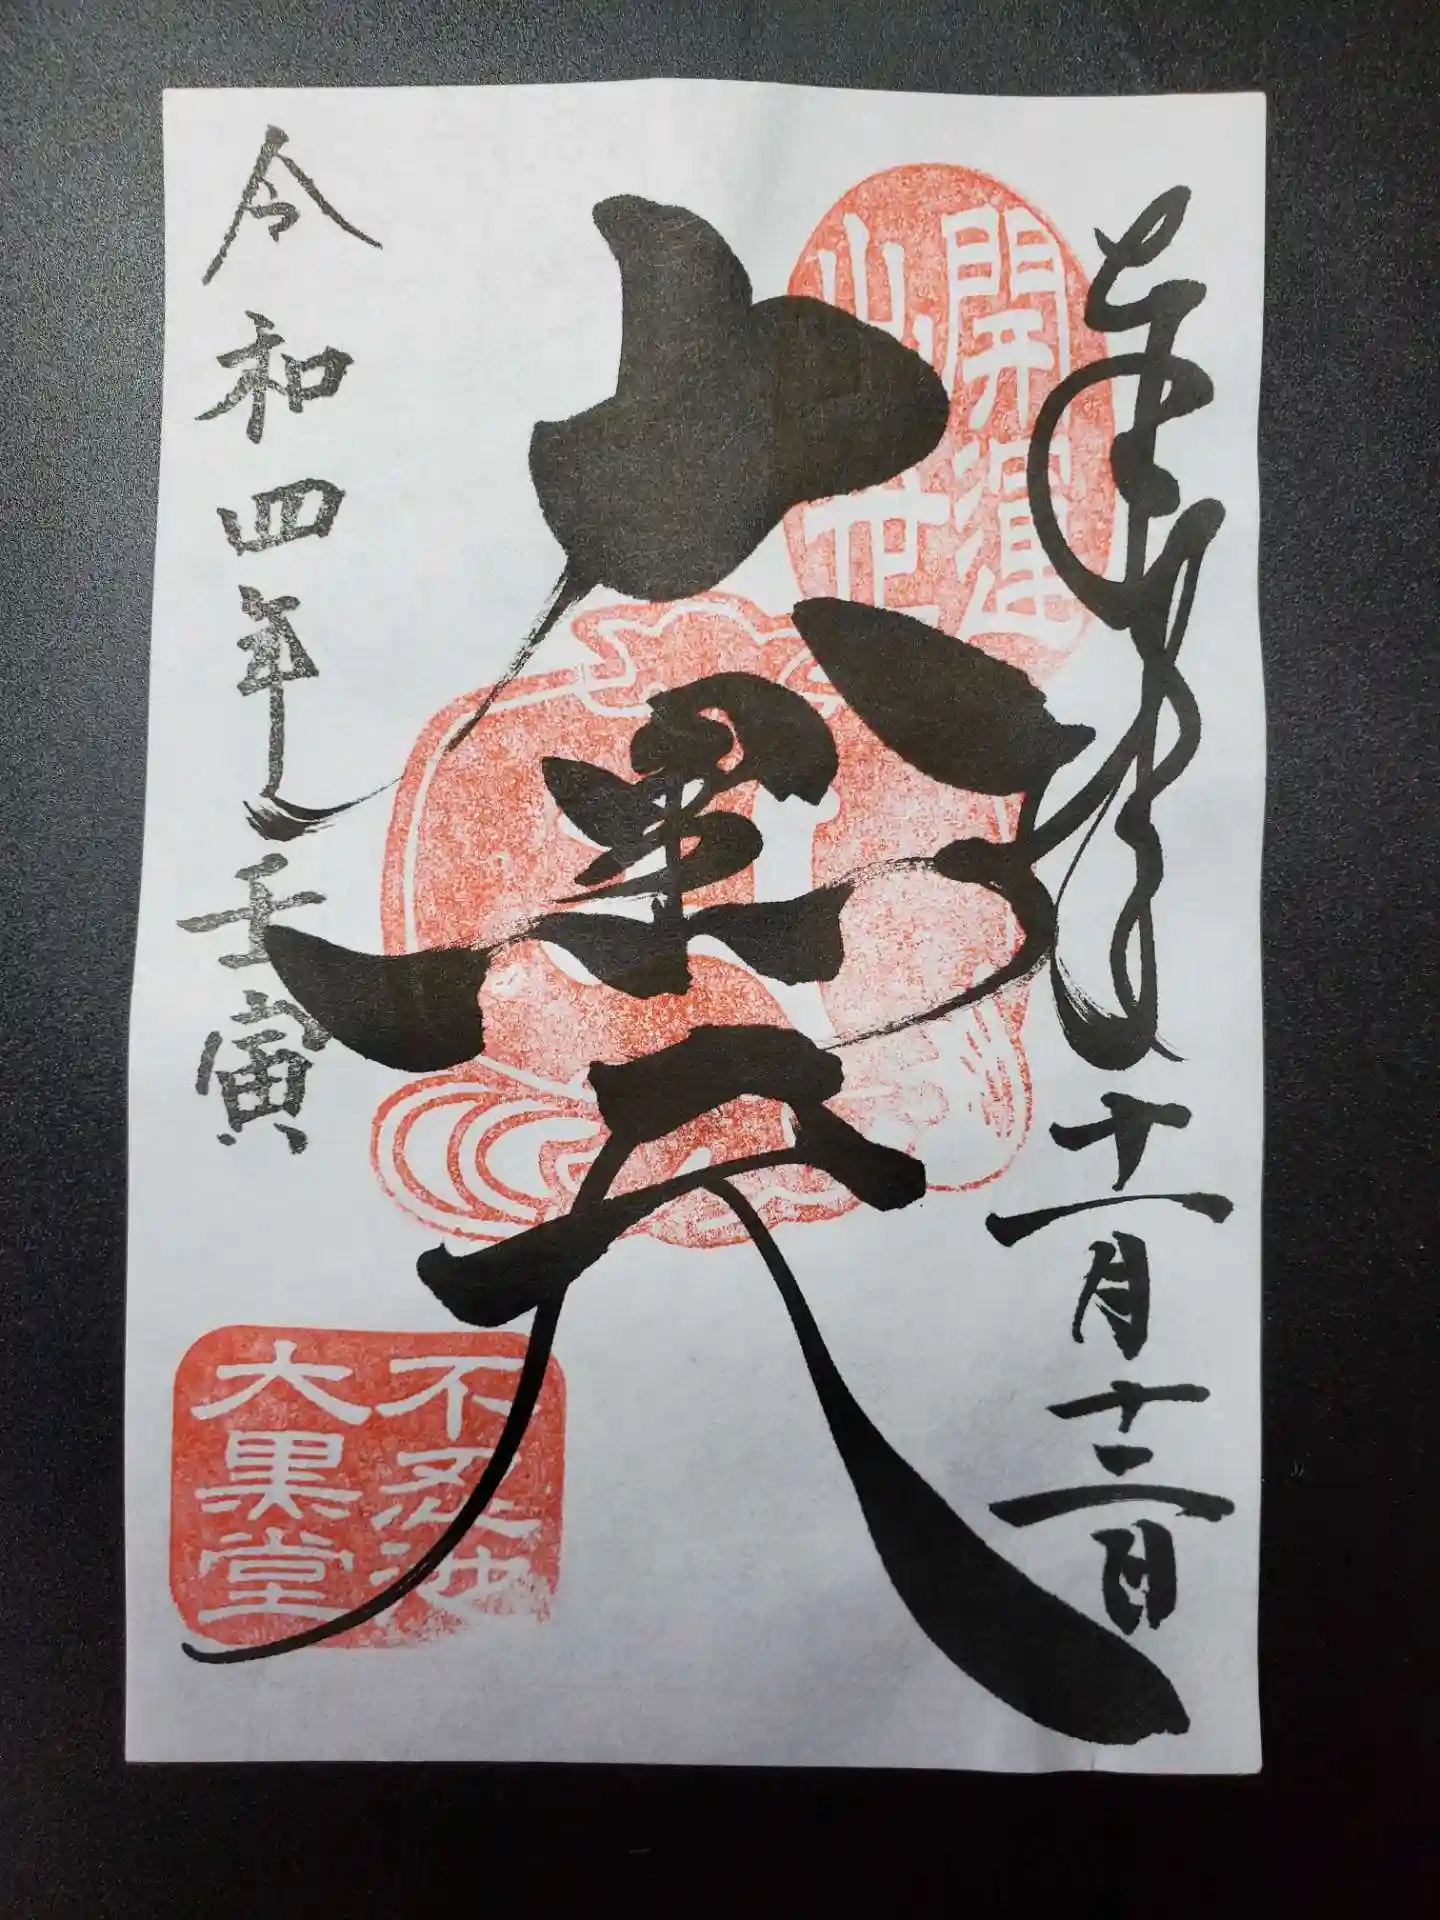 奉拝
十一月十二日
開運
出世
大黒天
令和四年壬寅
不忍池
大黒堂